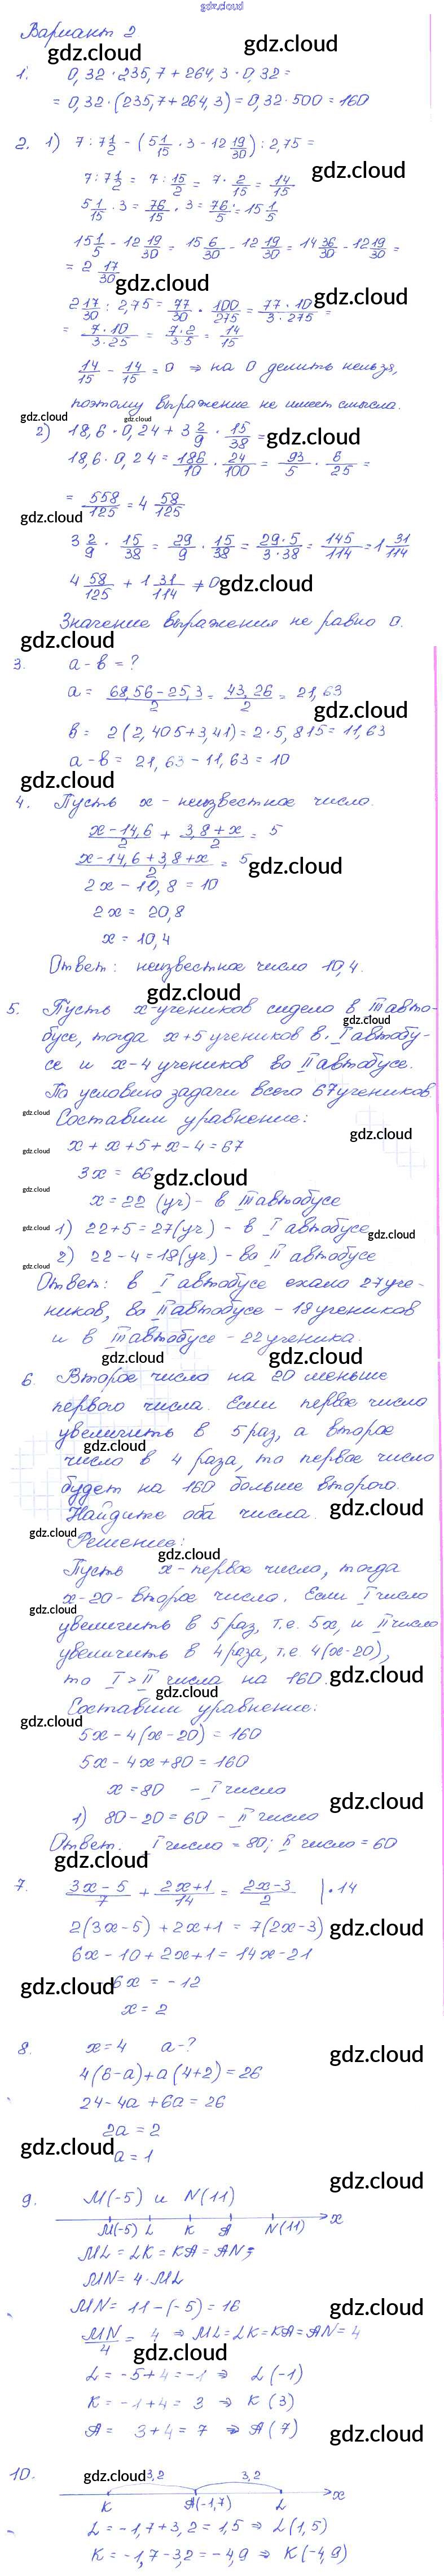 gdz.cloud
Вариант 2
gdz.cloud
gdz.cloud
1. 0,32 · 235,7 + 264,3 · 0,32 =
= 0,32 · (235,7 + 264,3) = 0,32 · 500 = 160
2. 1) 7 : 7 1/2 - (5 1/15 · 3 - 12 19/30) : 2,75 =
gdz.cloud
7 : 7 1/2 = 7 : 15/2 = 7 · 2/15 = 14/15
5 1/15 · 3 = 76/15 · 3 = 76/5 = 15 1/5
15 1/5 - 12 19/30 = 15 6/30 - 12 19/30 = 14 36/30 - 12 19/30 =
= 2 17/30
gdz.cloud
gdz.cloud
2 17/30 : 2,75 = 77/30 · 100/275 = 77 · 10/3 · 275 =
= 7 · 10/3 · 25 = 7 · 2/3 · 5 = 14/15
14/15 - 14/15 = 0 ⇒ на 0 делить нельзя,
поэтому выражение не имеет смысла.
gdz.cloud
gdz.cloud
2) 18,6 · 0,24 + 3 2/9 · 15/38 =
gdz.cloud
18,6 · 0,24 = 186/10 · 24/100 = 93/5 · 6/25 =
= 558/125 = 4 58/125
gdz.cloud
3 2/9 · 15/38 = 29/9 · 15/38 = 29 · 5/3 · 38 = 145/114 = 1 31/114
4 58/125 + 1 31/114 ≠ 0
gdz.cloud
Значение выражения не равно 0.
gdz.cloud
3. а - в = ?
а = 68,56 - 25,3/2 = 43,26/2 = 21,63
gdz.cloud
в = 2(2,405 + 3,41) = 2 · 5,815 = 11,63
а - в = 21,63 - 11,63 = 10
gdz.cloud
4. Пусть х - неизвестное число.
х - 14,6/2 + 3,8 + х/2 = 5
х - 14,6 + 3,8 + х/2 = 5
gdz.cloud
2х - 10,8 = 10
2х = 20,8
х = 10,4
Ответ: неизвестное число 10,4.
gdz.cloud
5. Пусть х-учеников сидело в III авто-
gdz.cloud
бусе, тогда х+5 учеников в I автобу-
се и х-4 учеников во II автобусе.
По условию задачи всего 67 учеников.
gdz.cloud
Составим уравнение:
gdz.cloud
х + х + 5 + х - 4 = 67
gdz.cloud
3х = 66
gdz.cloud
gdz.cloud
х = 22 (уч) - в III автобусе
gdz.cloud
1) 22 + 5 = 27 (уч) - в I автобусе
gdz.cloud
2) 22 - 4 = 18 (уч) - во II автобусе
gdz.cloud
Ответ: в I автобусе ехало 27 уче-
ников, во II автобусе - 18 учеников
и в III автобусе - 22 ученика.
gdz.cloud
gdz.cloud
6. Второе число на 20 меньше
первого числа. Если первое число
увеличить в 5 раз, а второе
gdz.cloud
число в 4 раза, то первое число
будет на 160 больше второго.
Найдите оба числа.
gdz.cloud
gdz.cloud
Решение:
gdz.cloud
Пусть х - первое число, тогда
х - 20 - второе число. Если I число
gdz.cloud
увеличить в 5 раз, т.е. 5х, и II число
увеличить в 4 раза, т.е. 4(х-20),
то I > II числа на 160.
gdz.cloud
gdz.cloud
Составим уравнение:
gdz.cloud
5х - 4(х - 20) = 160
5х - 4х + 80 = 160
х = 80 - I число
gdz.cloud
1) 80 - 20 = 60 - II число
Ответ. I число = 80; II число = 60
gdz.cloud
7. 3х - 5/7 + 2х + 1/14 = 2х - 3/2 | · 14
2(3х - 5) + 2х + 1 = 7(2х - 3)
gdz.cloud
6х - 10 + 2х + 1 = 14х - 21
gdz.cloud
6х = -12
х = 2
8. х = 4 а - ?
gdz.cloud
4(6 - а) + а(4 + 2) = 26
24 - 4а + 6а = 26
2а = 2
gdz.cloud
а = 1
gdz.cloud
9. M(-5) и N(11)
M(-5) L K A N(11) x
ML = LK = KA = AN;
MN = 4 · ML
MN = 11 - (-5) = 16
gdz.cloud
MN/4 = 4 ⇒ ML = LK = KA = AN = 4
gdz.cloud
L = -5 + 4 = -1 ⇒ L(-1)
K = -1 + 4 = 3 ⇒ K(3)
A = 3 + 4 = 7 ⇒ A(7)
gdz.cloud
10. gdz.cloud 3,2 3,2
K A(-1,7) L x
L = -1,7 + 3,2 = 1,5 ⇒ L(1,5)
K = -1,7 - 3,2 = -4,9 ⇒ K(-4,9)